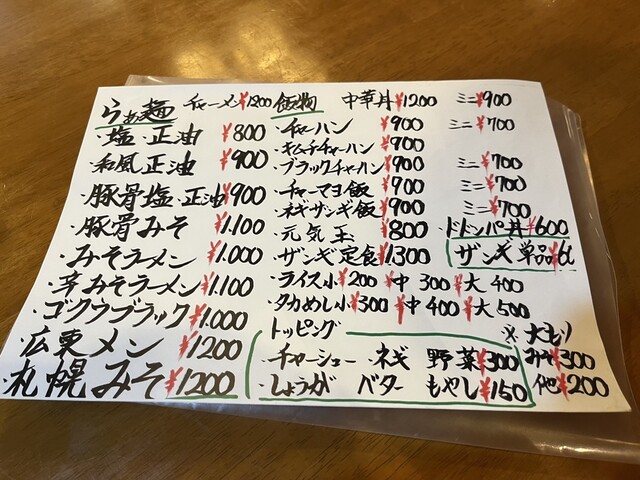 らぁ麺 チャーメン¥1200
・塩・正油 ¥800
・和風正油 ¥900
・豚骨塩・正油 ¥900
・豚骨みそ ¥1.100
・みそラーメン ¥1.000
・辛みそラーメン ¥1.100
・ゴクウブラック ¥1.000
・広東メン ¥1200
・札幌みそ ¥1200
飯物 中華丼 ¥1200 ミニ¥900
・チャーハン ¥900 ミニ¥700
・キムチチャーハン ¥900
・ブラックチャーハン ¥900 ミニ¥700
・チャーマヨ飯 ¥900 ミニ¥700
・ネギザンギ飯 ¥900 ミニ¥700
・元気玉 ¥800 ・ドドンパ丼 ¥600
・ザンギ定食 ¥1300 ザンギ単品
・ライス小¥200 ¥中300 ¥大400
・タカめし小¥300 ¥中400 ¥大500
トッピング
・チャーシュー・ネギ 野菜¥300
・しょうが バター もやし¥150
※大もり
みそ¥300
他¥200